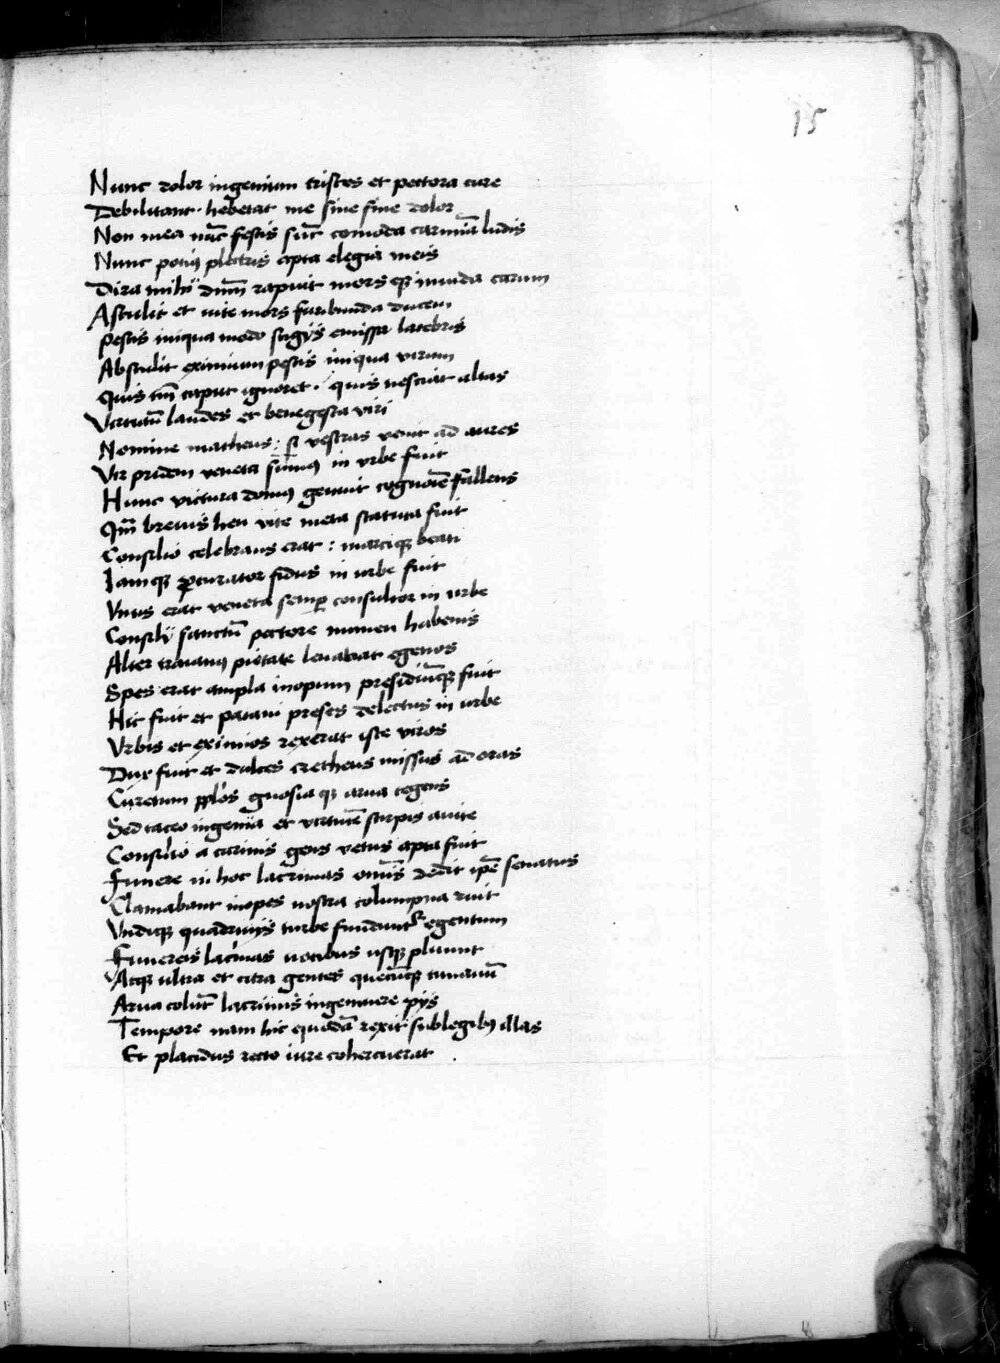 15
Nunc dolor ingenium tristes et pectora cure
Debilitant · hebetat me sine fine dolor
Non mea nūc festis sūt comoda carmīa ludis
Nunc potiꝰ plectris apta elegia meis
Dira mihi dūm rapuit mors eqꝫ inuida carum
Astulit et uite mors furibunda ducem
Pestis iniqua modo stigÿs emissa latebris
Abstulit eximium pestis iniqua virum
Quis tm̄ caput ignoret · quis nesciat altas
Virtutū laudes et benegesta viri
Nomine matheus : si vestras venit ad aures
Vir pridem veneta sūmꝰ in vrbe fuit
Hunc victura domꝰ genuit cognoīe fallens
Qm̄ breuis heu vite meta statuta fuit
Consilio celebrans erat : marciqꝫ beati
Iamqꝫ ꝓcurator fidus in urbe fuit
Vnus erat veneta semꝑ consultor in urbe
Consilÿ sanctū pectore numen habenis
Alter traianꝰ pietate leuabat egenos
Spes erat ampla inopum presidiūqꝫ fuit
Hic fuit et pataui preses delectus in urbe
Vrbis et eximios rexerat iste viros
Dux fuit et dulces cretheus missus ad oras
Curetum pplōs gnosia qꝫ arua regens
Sed taceo ingenia et virtutē stirpis auite
Consilio a carinis gens vetus apta fuit
Funere in hoc lacrimas omīs dedit ipē senatus
Clamabant inopes nostra columpna ruit
Vndiqꝫ quadriuÿs turbe fundunt᷑ egentum
Funereis lacīmas uocibus usqꝫ pluunt
Atqꝫ ultra et citra gentes quecūqꝫ timauū
Arua colūt lacrimis ingemuere pÿs
Tempore nam hic quodā rexit sublegibꝰ illas
Et placidus recto iure cohercuerat .